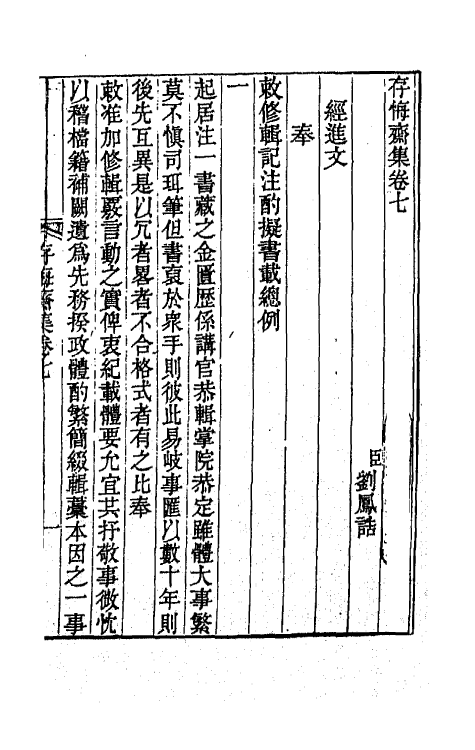 存悔齋集卷七
臣劉鳳誥
經進文
奉
敕修輯記注酌擬書載總例
一
起居注一書藏之金匱歷係講官恭輯掌院恭定雖體大事繁
莫不愼司珥筆但書裒於衆手則彼此易岐事匯以數十年則
後先互異是以冗者畧者不合格式者有之比奉
敕准加修輯覈言動之實俾衷紀載體要允宜共抒敬事微忱
以稽檔籍補闕遺爲先務揆政體酌繁簡綴輯藁本因之一事
存悔齋集卷七
一